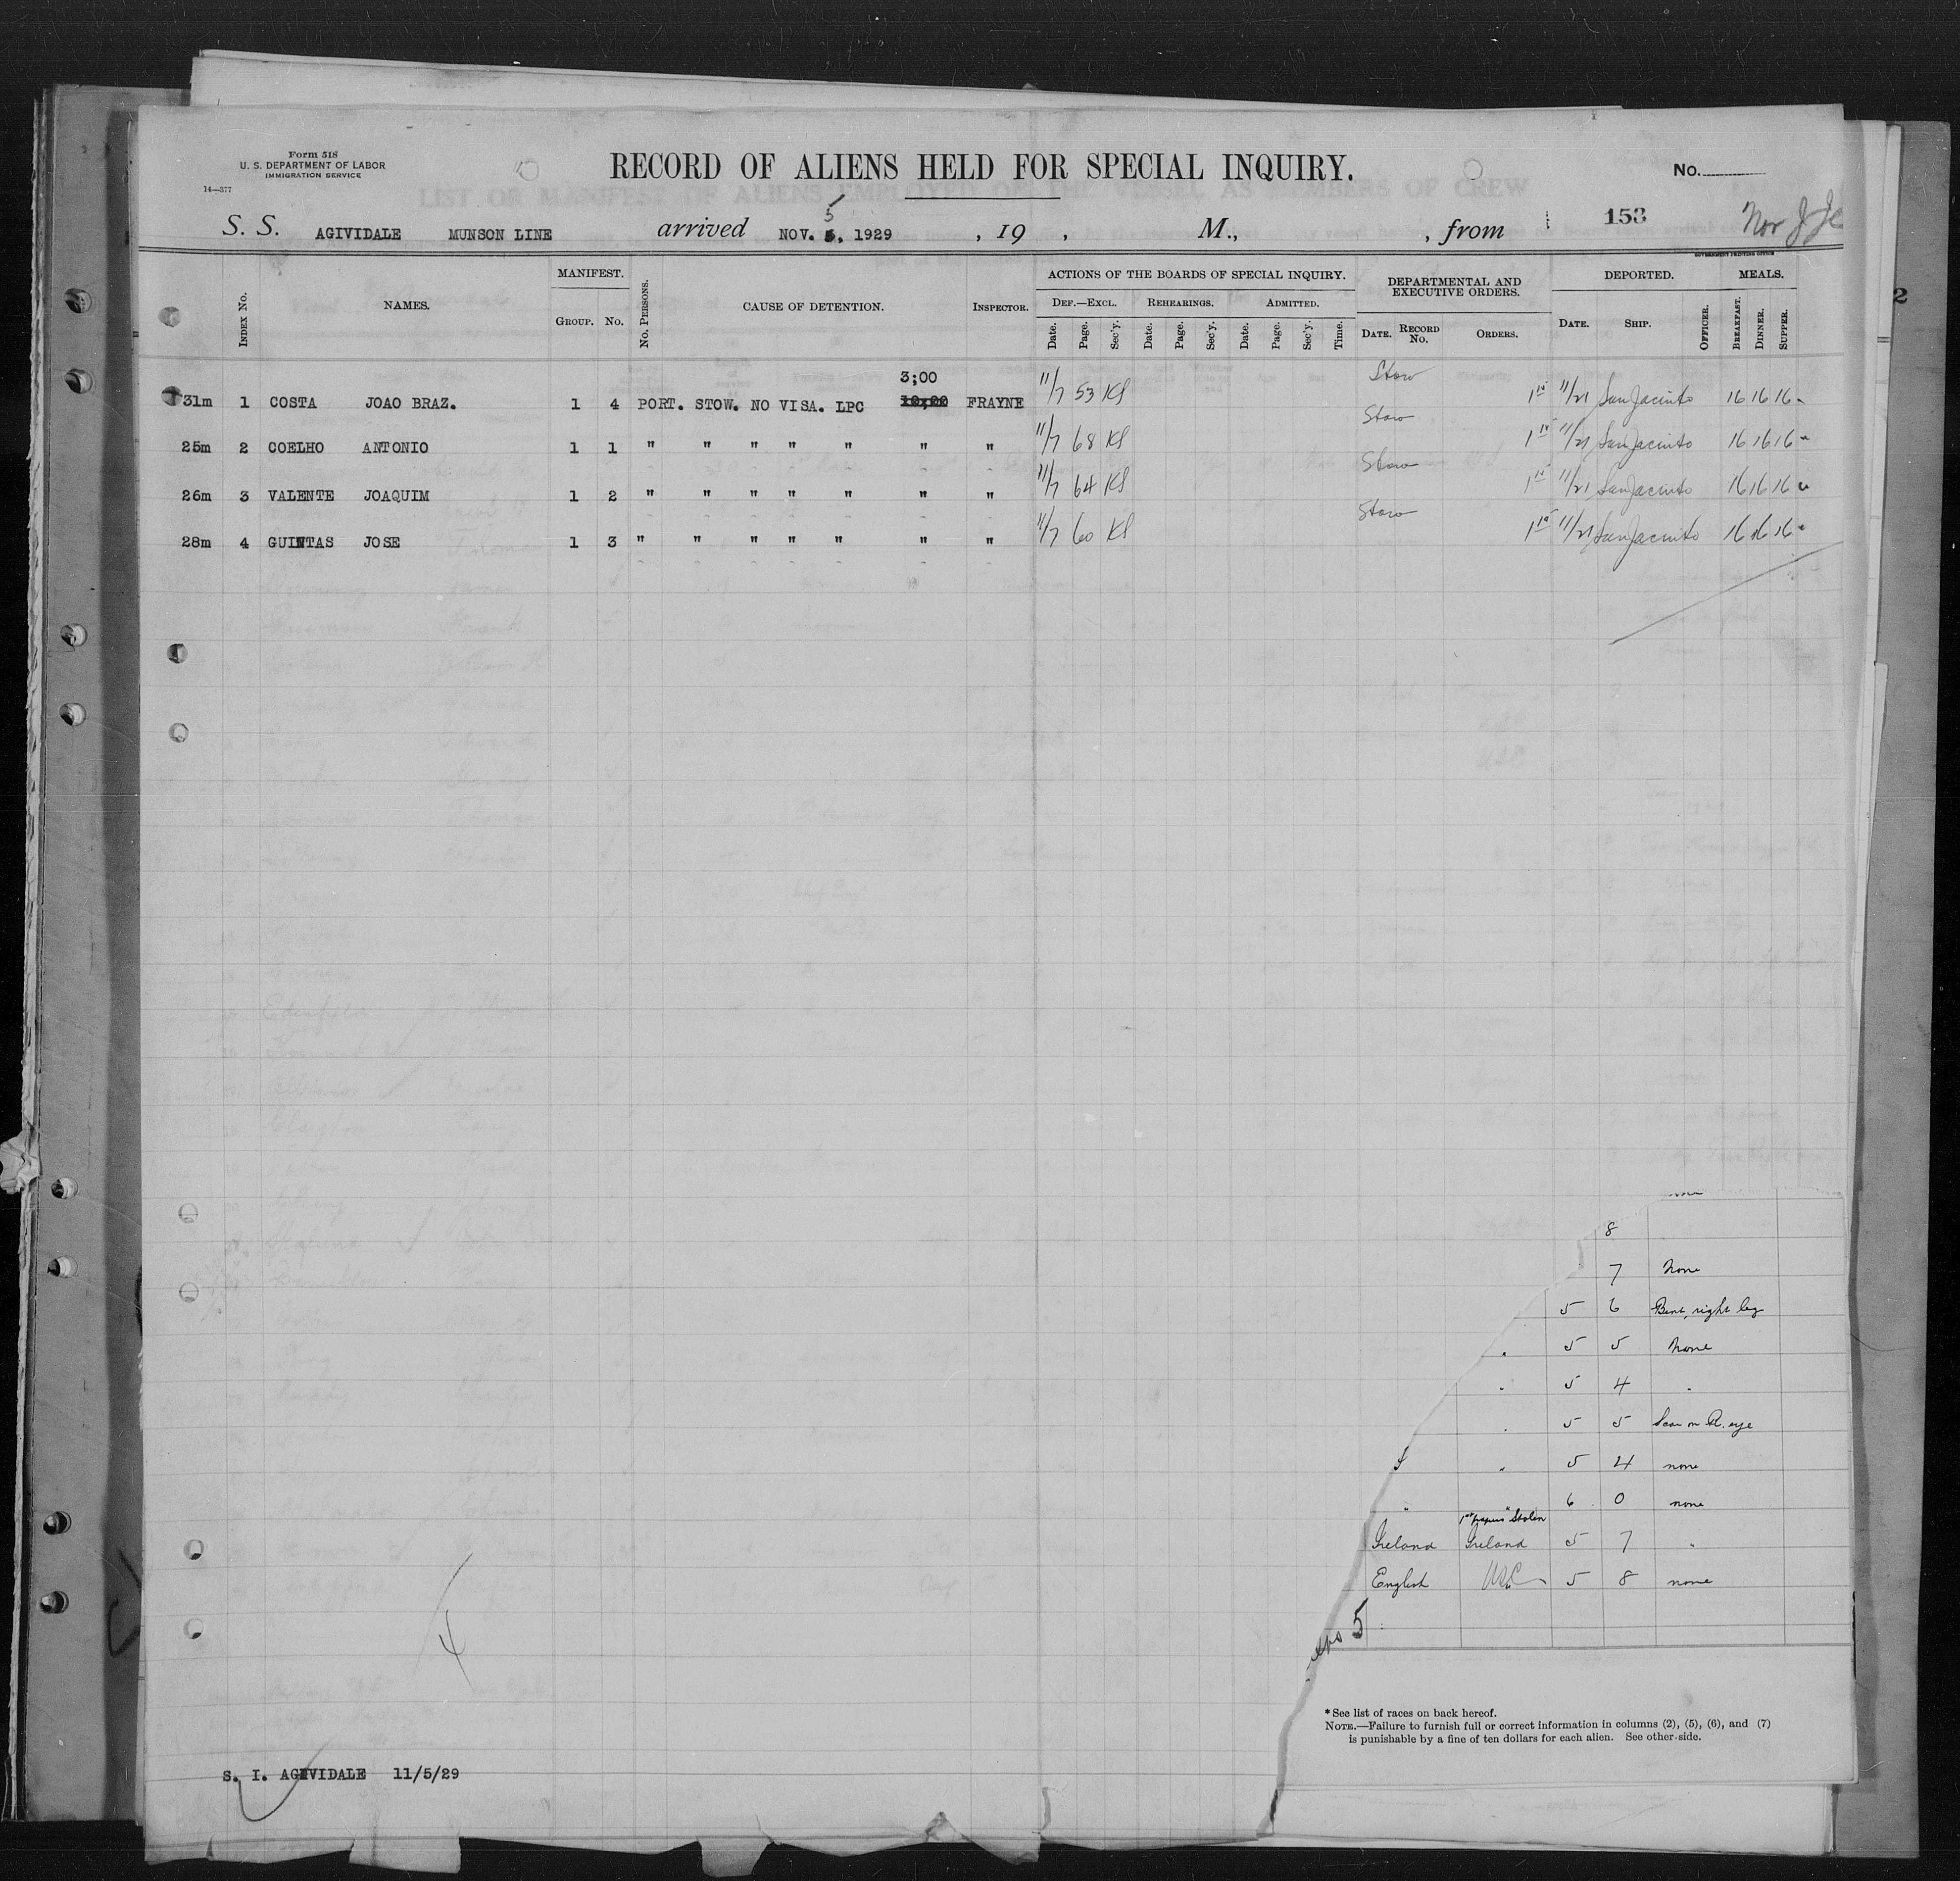 Form 518
U. S. DEPARTMENT OF LABOR
IMMIGRATION SERVICE
14—377
RECORD OF ALIENS HELD FOR SPECIAL INQUIRY.
No.
LIST OR MANIFEST OF ALIENS EMPLOYED ON THE VESSEL AS MEMBERS OF CREW
S. S. AGIVIDALE MUNSON LINE arrived NOV. 5, 1929 , 19 , M., , from 153
GOVERNMENT PRINTING OFFICE
Index No. NAMES. MANIFEST. No. Persons. CAUSE OF DETENTION. Inspector. ACTIONS OF THE BOARDS OF SPECIAL INQUIRY. DEPARTMENTAL AND EXECUTIVE ORDERS. DEPORTED. MEALS.
Group. No. Def.—Excl. Rehearings. Admitted.
Date. Page. Sec'y. Date. Page. Sec'y. Date. Page. Sec'y. Time. Date. Record No. Orders. Date. Ship. Officer. Breakfast. Dinner. Supper.
3;00 Stow
31m 1 COSTA JOAO BRAZ. 1 4 PORT. STOW. NO VISA. LPC 10;00 FRAYNE 11/7 53 KS 1 15 11/21 San Jacinto 16 16 16
Stow
25m 2 COELHO ANTONIO 1 1 " " " " " " " 11/7 68 KS 1 15 11/21 San Jacinto 16 16 16
Stow
26m 3 VALENTE JOAQUIM 1 2 " " " " " " " 11/7 64 KS 1 15 11/21 San Jacinto 16 16 16
Stow
28m 4 GUINTAS JOSE 1 3 " " " " " " " 11/7 60 KS 1 15 11/21 San Jacinto 16 16 16
8
7 None
5 6 Bent right leg
5 5 None
5 4 "
5 5 Scar on R. eye
" 5 4 none
" 6 0 none
1st papers Stolen
Ireland Ireland 5 7 "
English USC 5 8 none
5
4
* See list of races on back hereof.
Note.—Failure to furnish full or correct information in columns (2), (5), (6), and (7)
is punishable by a fine of ten dollars for each alien. See other side.
S. I. AGIVIDALE 11/5/29
2